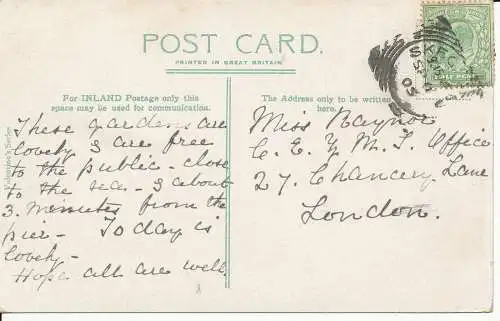 POST CARD.
PRINTED IN GREAT BRITAIN
For INLAND Postage only this
space may be used for communication.
The Address only to be written
here.
Valentine's Series
These gardens are
lovely & are free
to the public - close
to the sea - & about
3. minutes from the
pier - To day is
lovely -
Hope all are well.
Miss Raynor
C. E. Y. M. S. Office
27. Chancery Lane
London.
HALF PENNY
05